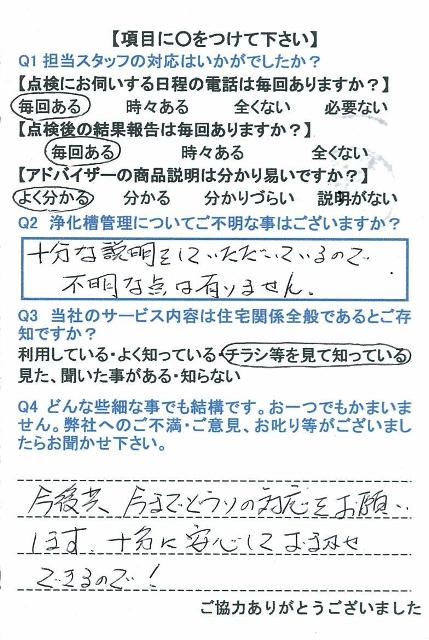 【項目に〇をつけて下さい】
Q1 担当スタッフの対応はいかがでしたか?
【点検にお伺いする日程の電話は毎回ありますか?】
毎回ある 時々ある 全くない 必要ない
【点検後の結果報告は毎回ありますか?】
毎回ある 時々ある 全くない
【アドバイザーの商品説明は分かり易いですか?】
よく分かる 分かる 分かりづらい 説明がない
Q2 浄化槽管理についてご不明な事はございますか?
十分な説明をしていただいているので
不明な点は有りません。
Q3 当社のサービス内容は住宅関係全般であるとご存
知ですか?
利用している・よく知っている・チラシ等を見て知っている
見た、聞いた事がある・知らない
Q4 どんな些細な事でも結構です。お一つでもかまいま
せん。弊社へのご不満・ご意見、お叱り等がございまし
たらお聞かせ下さい。
今後共、今までどうりの対応をお願い
します。十分に安心しておまかせ
できるので!
ご協力ありがとうございました